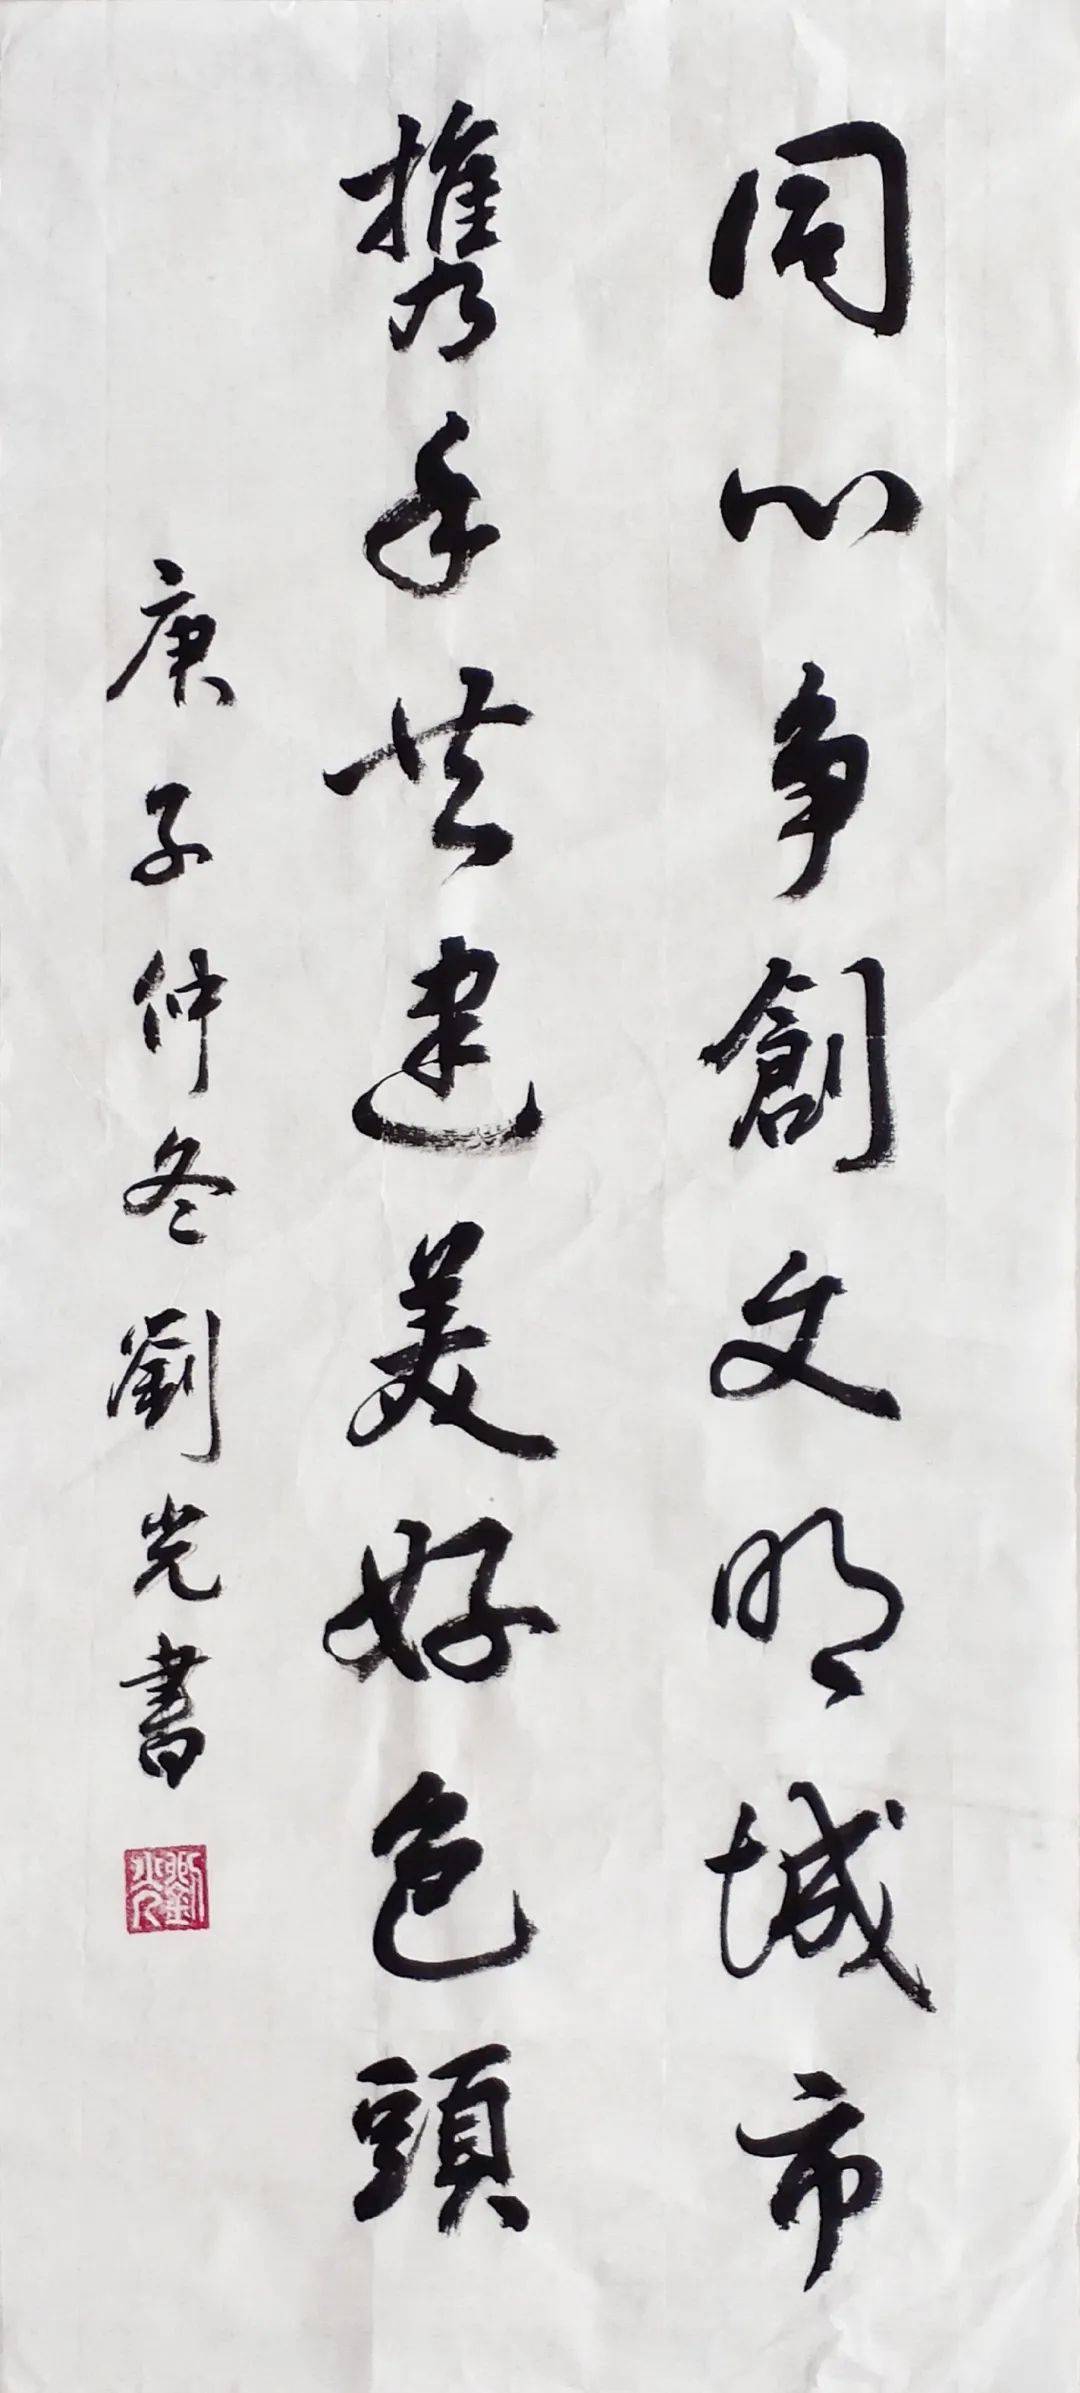 同心争創文明城市
携手共建美好包頭
庚子仲冬劉光書
劉光